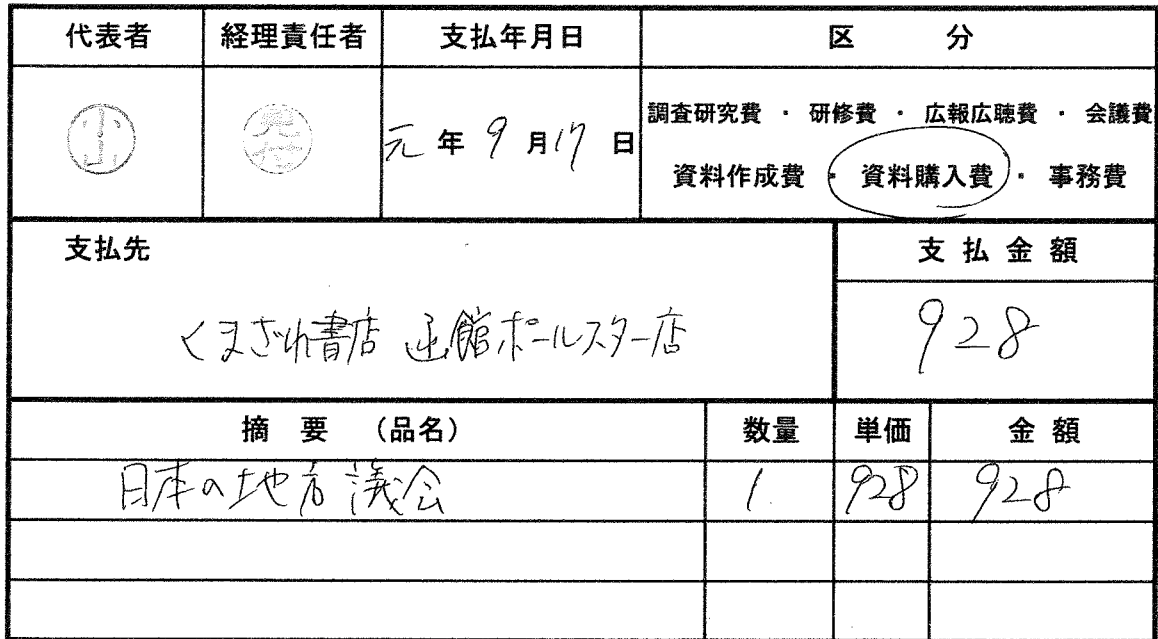 代表者 経理責任者 支払年月日 区 分
小山 元年 9月17日
調査研究費 ・ 研修費 ・ 広報広聴費 ・ 会議費
資料作成費 ・ 資料購入費 ・ 事務費
支払先 支払金額
くまざわ書店 函館ポールスター店 928
摘 要 (品名) 数量 単価 金 額
日本の地方議会 1 928 928